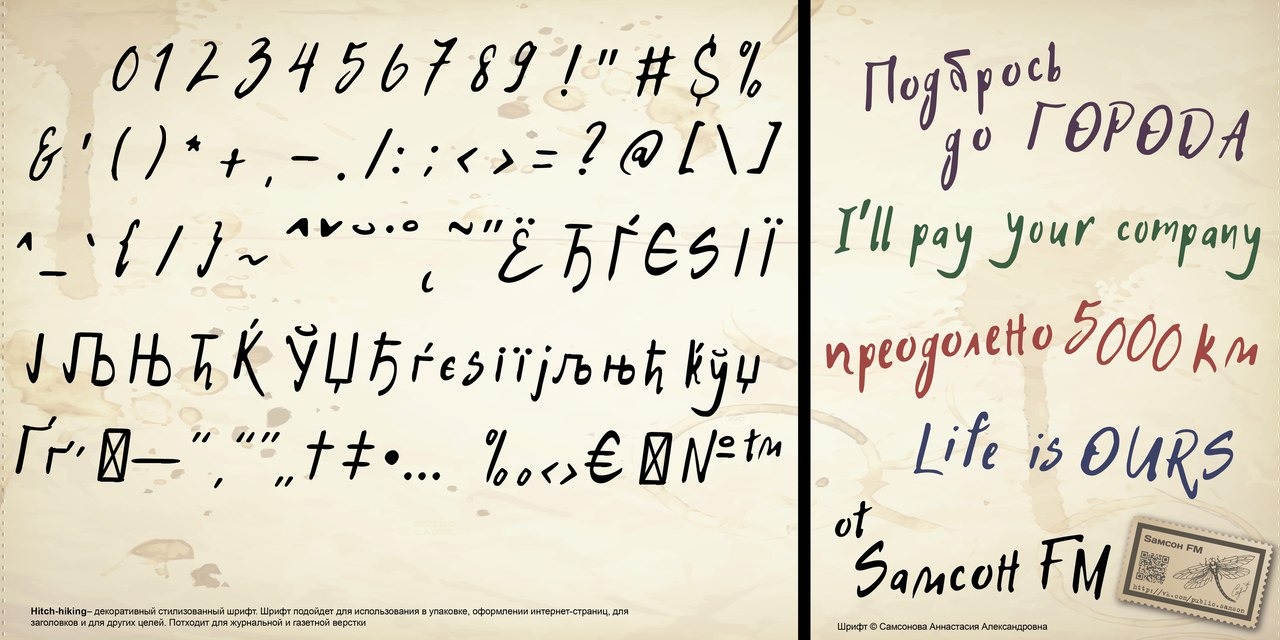 0 1 2 3 4 5 6 7 8 9 ! " # $ %
& ' ( ) * + , – . / : ; < > = ? @ [ \ ]
^ _ ` { / } ~ ˆ ˇ ˘ · ˚ ˛ ~ " Ё Ђ Ѓ Є Ѕ І Ї
Ј Љ Њ Ћ Ќ Ў Џ Ђ ѓ є ѕ і ї ј љ њ ћ ќ ў џ
Ґ ґ ’ — ” ‚ “ ” „ † ‡ • … ‰ ‹ › € № ™
Hitch-hiking– декоративный стилизованный шрифт. Шрифт подойдет для использования в упаковке, оформлении интернет-страниц, для
заголовков и для других целей. Потходит для журнальной и газетной верстки
Подбрось
до ГОРОDА
I'll pay your company
преодолено 5000 км
Life is OURS
от
Sамсон FM
Sамсон FM
http://vk.com/public.samson
Шрифт © Самсонова Аннастасия Александровна